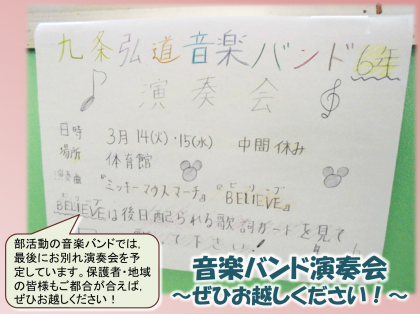 九条弘道音楽バンド6年
演奏会
日時 3月14(火)・15(水) 中間休み
場所 体育館
演奏曲 『ミッキーマウスマーチ』『BELIEVE』
ビリーブ
BELIEVEは後日配られる歌詞カードを見て
て下さい!
部活動の音楽バンドでは,
最後にお別れ演奏会を予
定しています。保護者・地域
の皆様もご都合が合えば,
ぜひお越しください!
音楽バンド演奏会
~ぜひお越しください!~